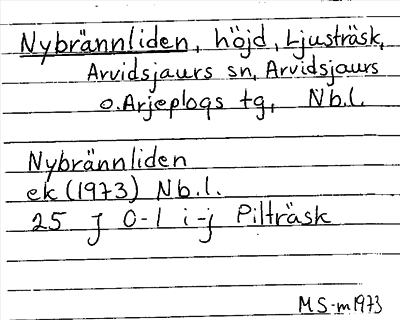 Nybrännliden, höjd, Ljusträsk,
Arvidsjaurs sn, Arvidsjaurs
o. Arjeplogs tg, Nb.l.
Nybrännliden
ek (1973) Nb.l.
25 J 0-1 i-j Pilträsk
MS-m1973